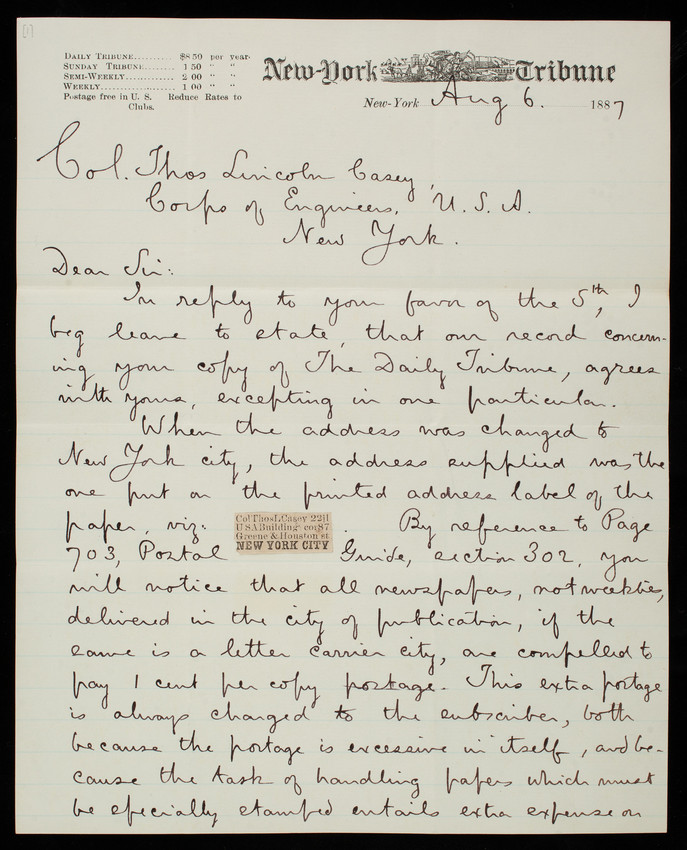 [1]
Daily Tribune.......... $8 50 per year.
Sunday Tribune........ 1 50 " "
Semi-Weekly............. 2 00 " "
Weekly.................... 1 00 " "
Postage free in U. S. Reduce Rates to
Clubs.
New-York Tribune
New-York Aug 6. 1887
Col. Thos Lincoln Casey,
Corps of Engineers, U. S. A.
New York.
Dear Sir:
In reply to your favor of the 5th, I
beg leave to state, that our record concern-
ing your copy of The Daily Tribune, agrees
with yours, excepting in one particular.
When the address was changed to
New York city, the address supplied was the
one put on the printed address label of the
paper, viz: .
Col Thos L Casey 22jl
U S A Building cor87
Greene & Houston st
NEW YORK CITY
By reference to Page
703, Postal Guide, section 302, you
will notice that all newspapers, not weeklies,
delivered in the city of publication, if the
same is a letter carrier city, are compelled to
pay 1 cent per copy postage. This extra postage
is always charged to the subscriber, both
because the postage is excessive in itself, and be-
cause the task of handling papers which must
be specially stamped entails extra expense on